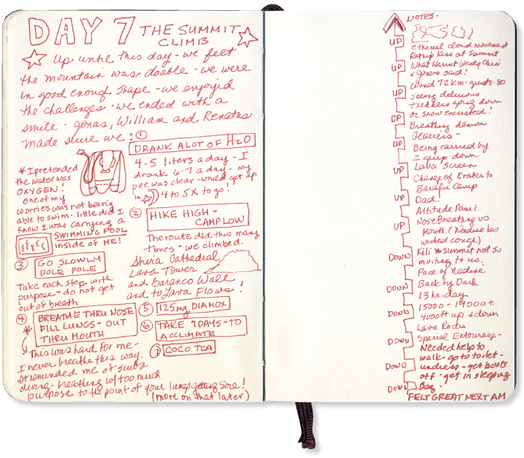 DAY 7 THE SUMMIT
CLIMB
Up until this day - we felt
the mountain was doable - we were
in good enough shape - we enjoyed
the challenges - we ended with a
smile - Jonas, William and Renatus
made sure we: ①
DRANK A LOT OF H2O
4-5 liters a day - I
drank 6-7 a day - my
pee was clear - would get up
4 to 5X to go!
* I pretended
the water was
OXYGEN!
one of my
worries was not being
able to swim - little did I
know I was carrying a
SWIMMING POOL
inside of ME!
② HIKE HIGH -
CAMP LOW
The route did this many
times - we climbed.
Shira Cathedral
Lava Tower
and Baranco Wall
and to Lava Flows!
③ GO SLOWLY
POLE POLE
Take each step with
purpose - do not get
out of breath
④ BREATHE THRU NOSE
FILL LUNGS - OUT
THRU MOUTH
* This was hard for me -
I never breathe this way.
It reminded me of scuba
diving - breathing w/ too much
purpose to the point of your lungs getting sore!
(more on that later)
⑤ 125mg DIAMOX
⑥ TAKE 7 DAYS - TO
ACCLIMATE
⑦ COCO TEA
NOTES -
UP
Ethereal cloud movement
at Summit
UP
What
said!
Wind 72 Km - gusts - 80
UP
Seeing delirious
trekkers going down
UP
or snow encrusted!
Breathing down
UP
Glaciers -
Being carried by
UP
2 guys down
Lava Screen
UP
Change of Crater to
Barafu Camp
UP
Dad!
Altitude Panic
UP
Nose Breathing vs
Mouth (Nadine has
cough)
DOWN
Kili Summit not so
inviting to us.
DOWN
Pace of Nadine
Back by Dark
DOWN
13 hr. day
15000 - 19000 ft.
DOWN
4000 ft up & down
Lava Rocks
DOWN
Special Entourage -
Needed help to
DOWN
walk - go to toilet -
undress - get boots
DOWN
off - get in sleeping
DOWN
Bag!
FELT GREAT NEXT AM